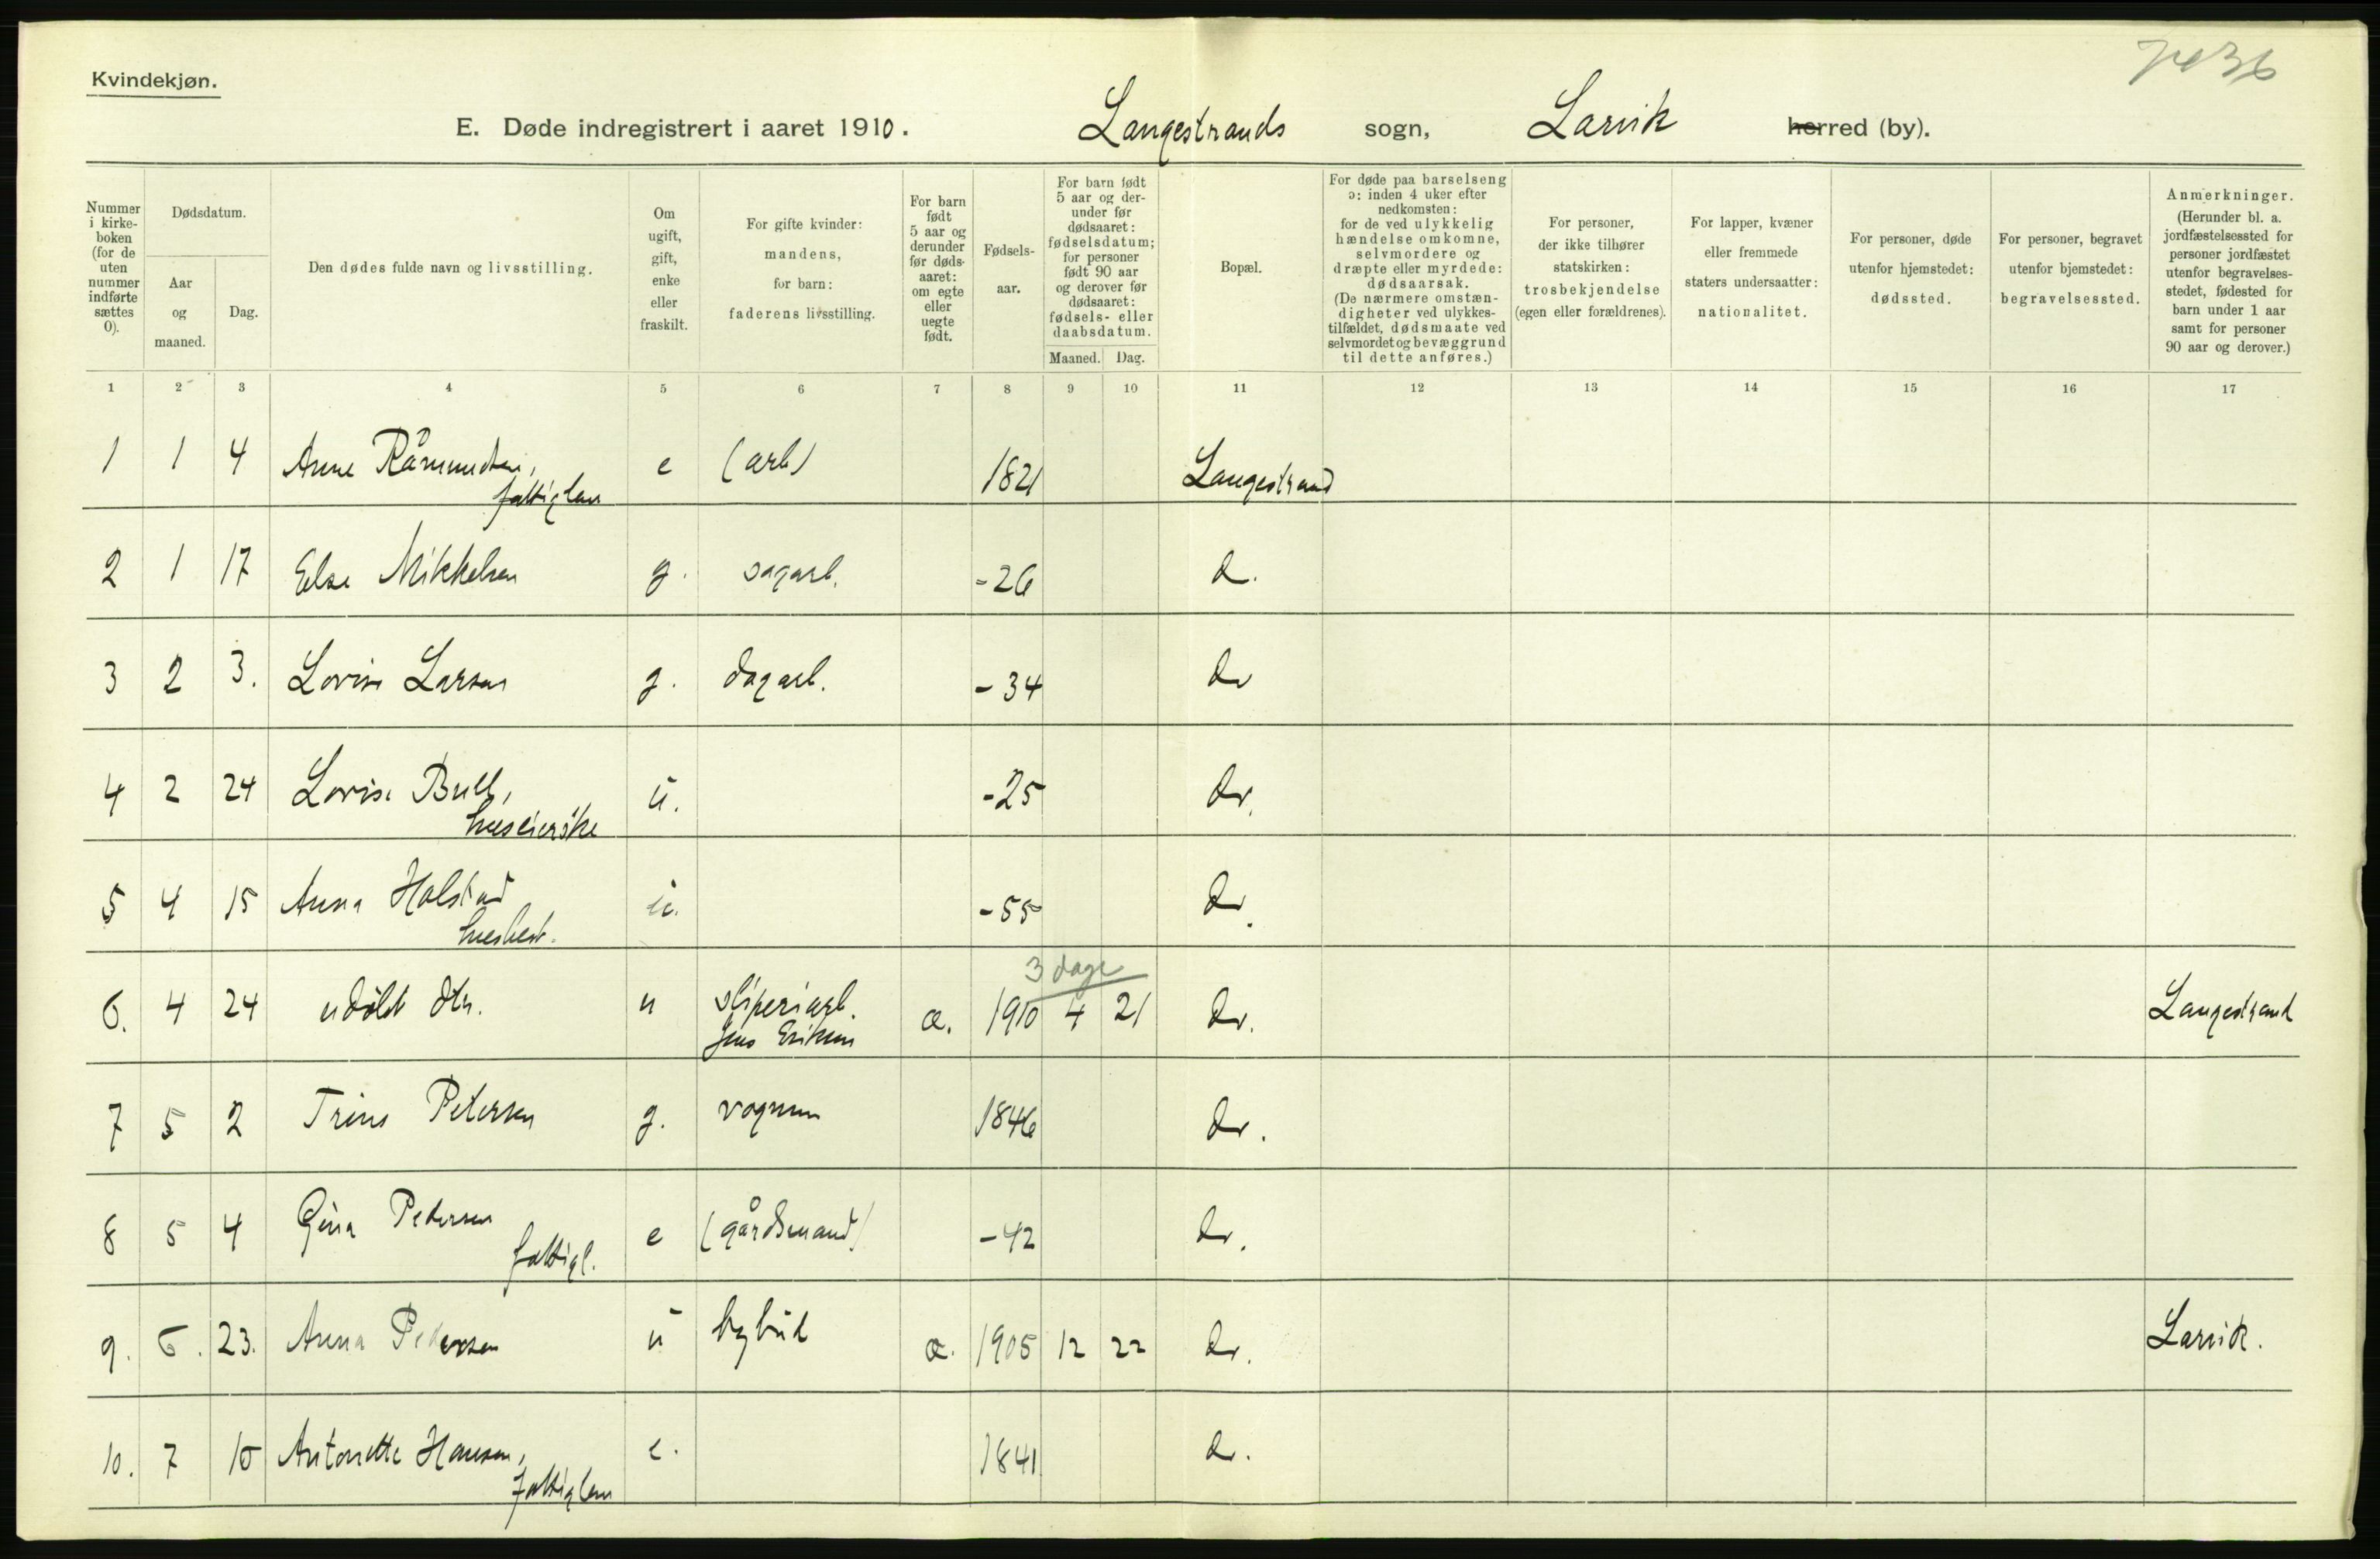 7436
Kvindekjøn.
E. Døde indregistrert i aaret 1910. Langestrands sogn, Larvik herred (by).
Nummer i kirke-boken (for de uten nummer indførte sættes 0).
Dødsdatum.
Aar og maaned.
Dag.
Den dødes fulde navn og livsstilling.
Om ugift, gift, enke eller fraskilt.
For gifte kvinder: mandens, for barn: faderens livsstilling.
For barn født 5 aar og derunder før døds-aaret: om egte eller uegte født.
Fødsels-aar.
For barn født 5 aar og der-under før dødsaaret: fødselsdatum; for personer født 90 aar og derover før dødsaaret: fødsels- eller daabsdatum.
Maaned. Dag.
Bopæl.
For døde paa barselseng ɔ: inden 4 uker efter nedkomsten: for de ved ulykkelig hændelse omkomne, selvmordere og dræpte eller myrdede: dødsaarsak. (De nærmere omstæn-digheter ved ulykkes-tilfældet, dødsmaate ved selvmordet og bevæggrund til dette anføres.)
For personer, der ikke tilhører statskirken: trosbekjendelse (egen eller forældrenes).
For lapper, kvæner eller fremmede staters undersaatter: nationalitet.
For personer, døde utenfor hjemstedet: dødssted.
For personer, begravet utenfor hjemstedet: begravelsessted.
Anmerkninger. (Herunder bl. a. jordfæstelsessted for personer jordfæstet utenfor begravelses-stedet, fødested for barn under 1 aar samt for personer 90 aar og derover.)
1 2 3 4 5 6 7 8 9 10 11 12 13 14 15 16 17
1 1 4 Anne Råmundsen, e (arb) 1821 Langestrand
fattiglem
2 1 17 Else Mikkelsen g. sagarb. -26 d.
3 2 3. Lovise Larsen g. dagarb. -34 do
4 2 24 Lovise Bull, ŭ. -25 do.
huseierske
5 4 15 Anna Holstad ŭ. -55 do.
husbest.
3 dage
6. 4 24 udøbt dtr. u sliperiarb. æ. 1910 4 21 do. Langestrand
Jens Eriksen
7 5 2 Trine Petersen g. vognm 1846 do.
8 5 4 Gina Pedersen e (gårdsmand) -42 do.
fattigl.
9. 6. 23. Anna Pedersen ŭ bybud æ. 1905 12 22 do. Larvik.
10. 7 10 Antonette Hansen, e. 1841 do.
fattiglem